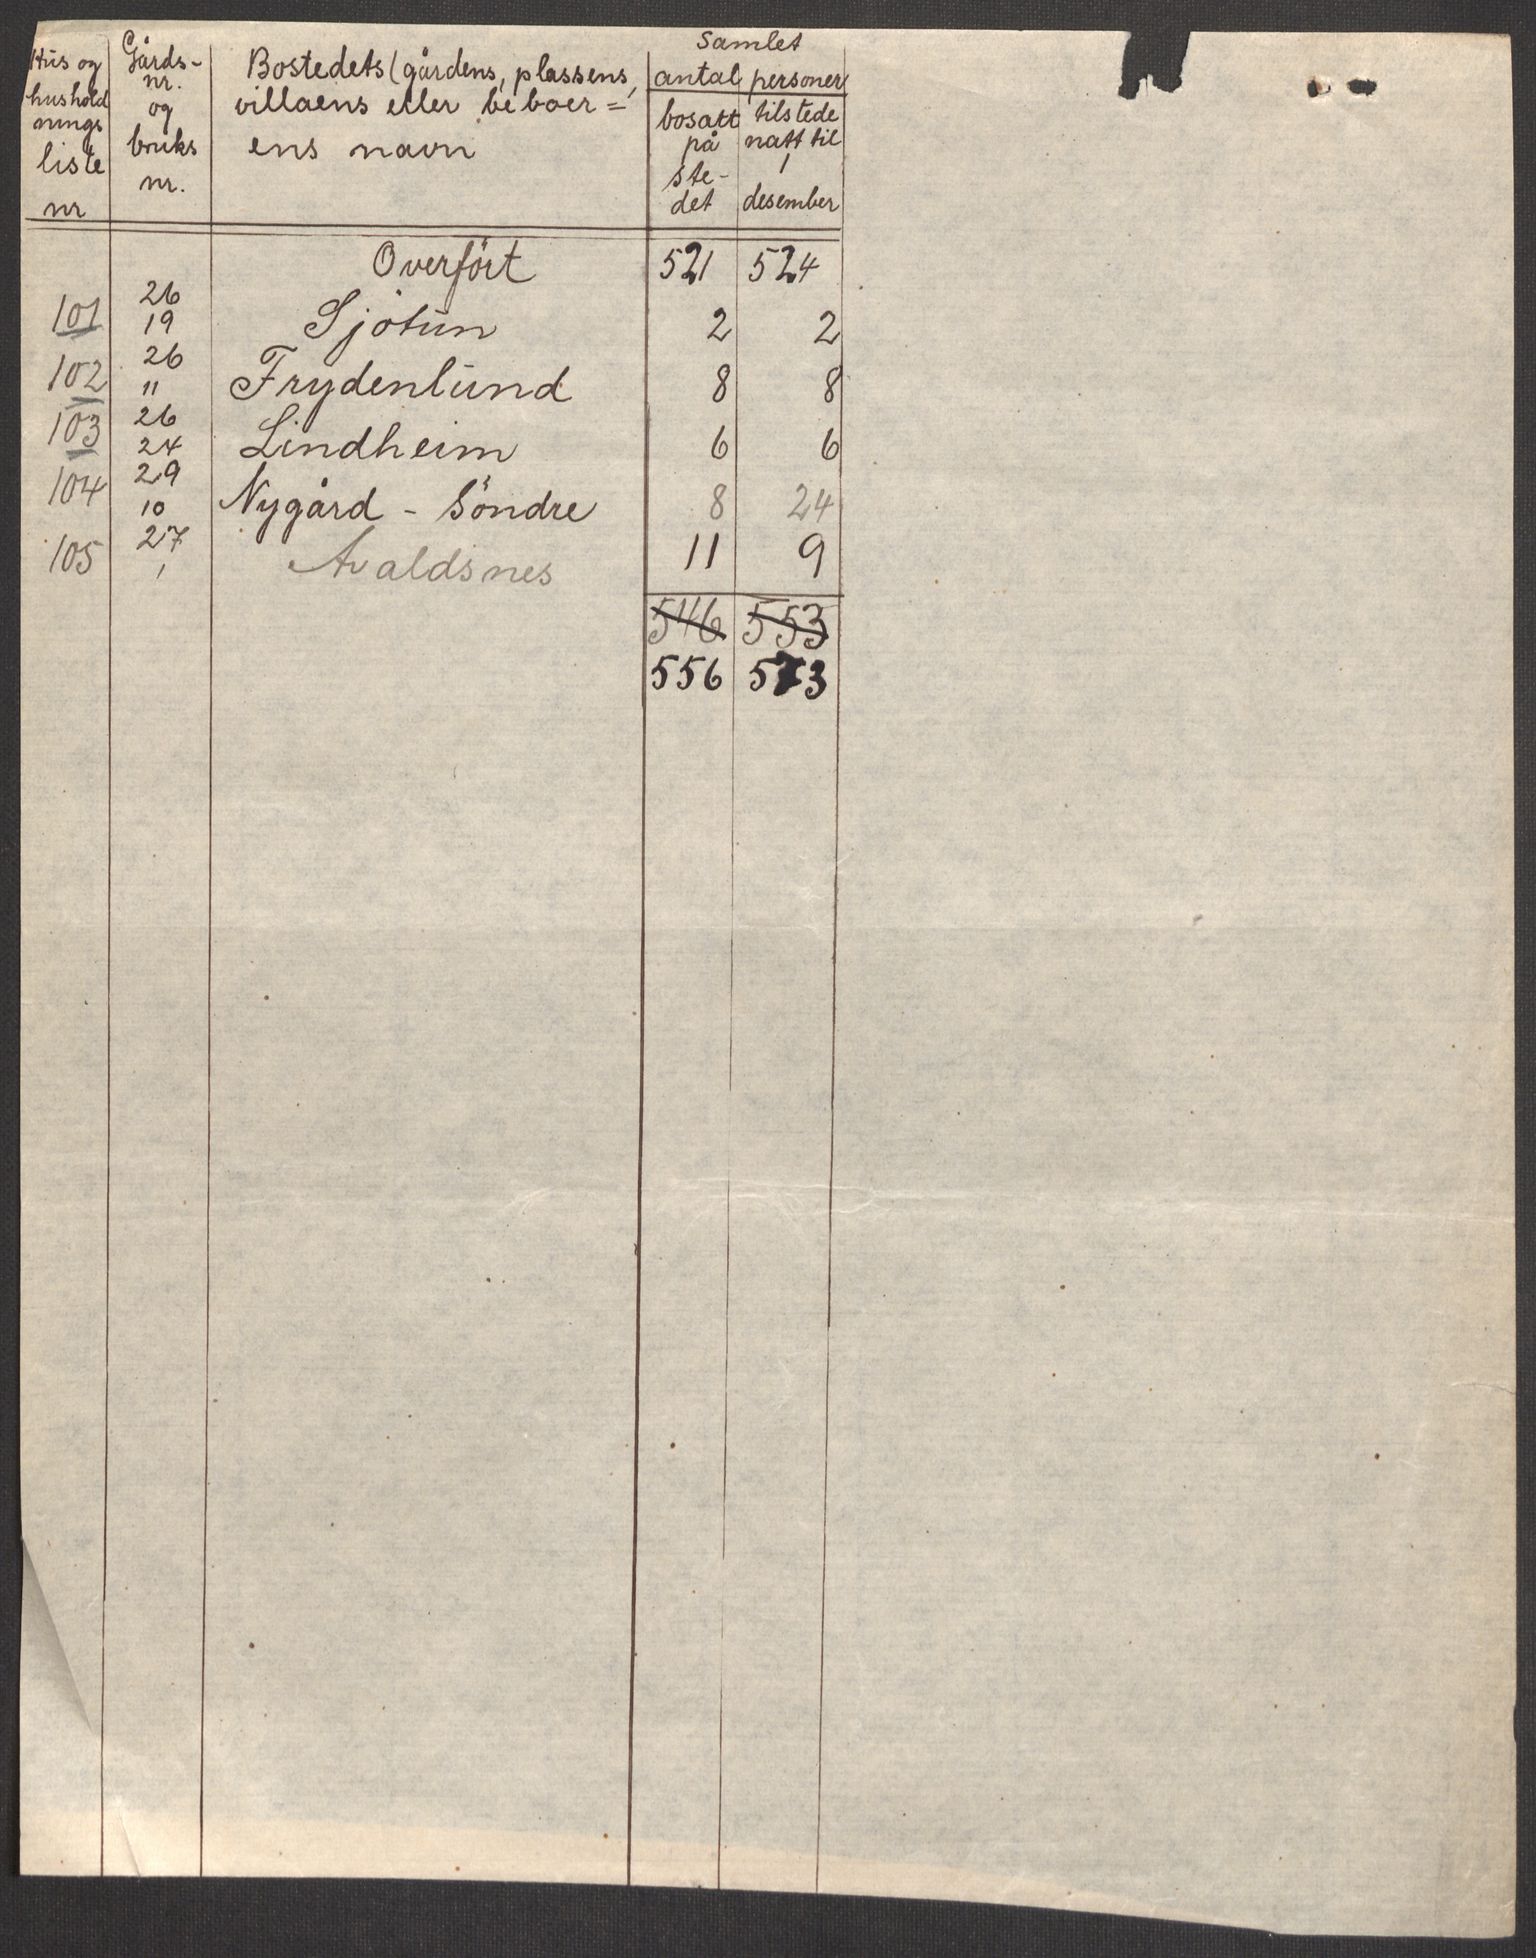 Hus og
hushold
nings
liste
nr
Gårds-
nr.
og
bruks
nr.
Bostedets (gårdens, plassens,
villaens eller beboer=
ens navn
Samlet
antal personer
bosatt
på
ste-
det
tilstede
natt til
1
desember
Overfört 521 524
101 26 19 Sjötun 2 2
102 26 11 Frydenlund 8 8
103 26 24 Lindheim 6 6
104 29 10 Nygård - Söndre 8 24
105 27 1 Avaldsnes 11 9
546 553
556 573